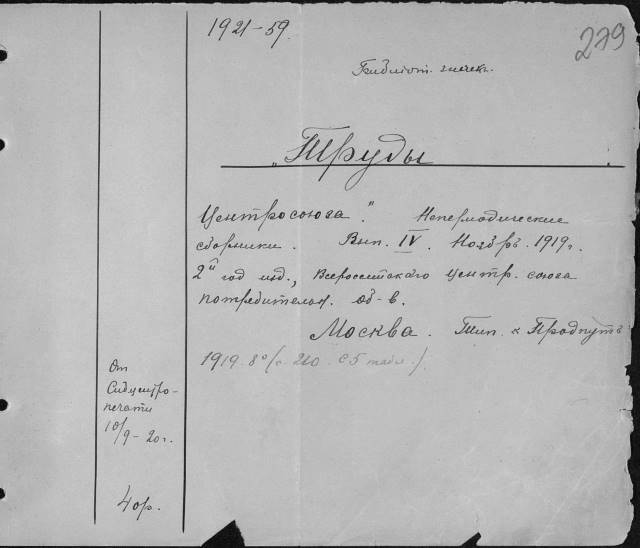 1921-59.
279
Библиот. чнечек.
„Труды
Центросоюза". Непериодические
сборники. Вып. IV. Ноябрь 1919 г.
2й год изд., Всероссийскаго центр. союза
потребительн. об-в.
Москва. Тип. „Продпуть"
1919. 8° (с. 210. с 5 табл.)
От
Сибцентро-
печати
10/9-20 г.
40 р.